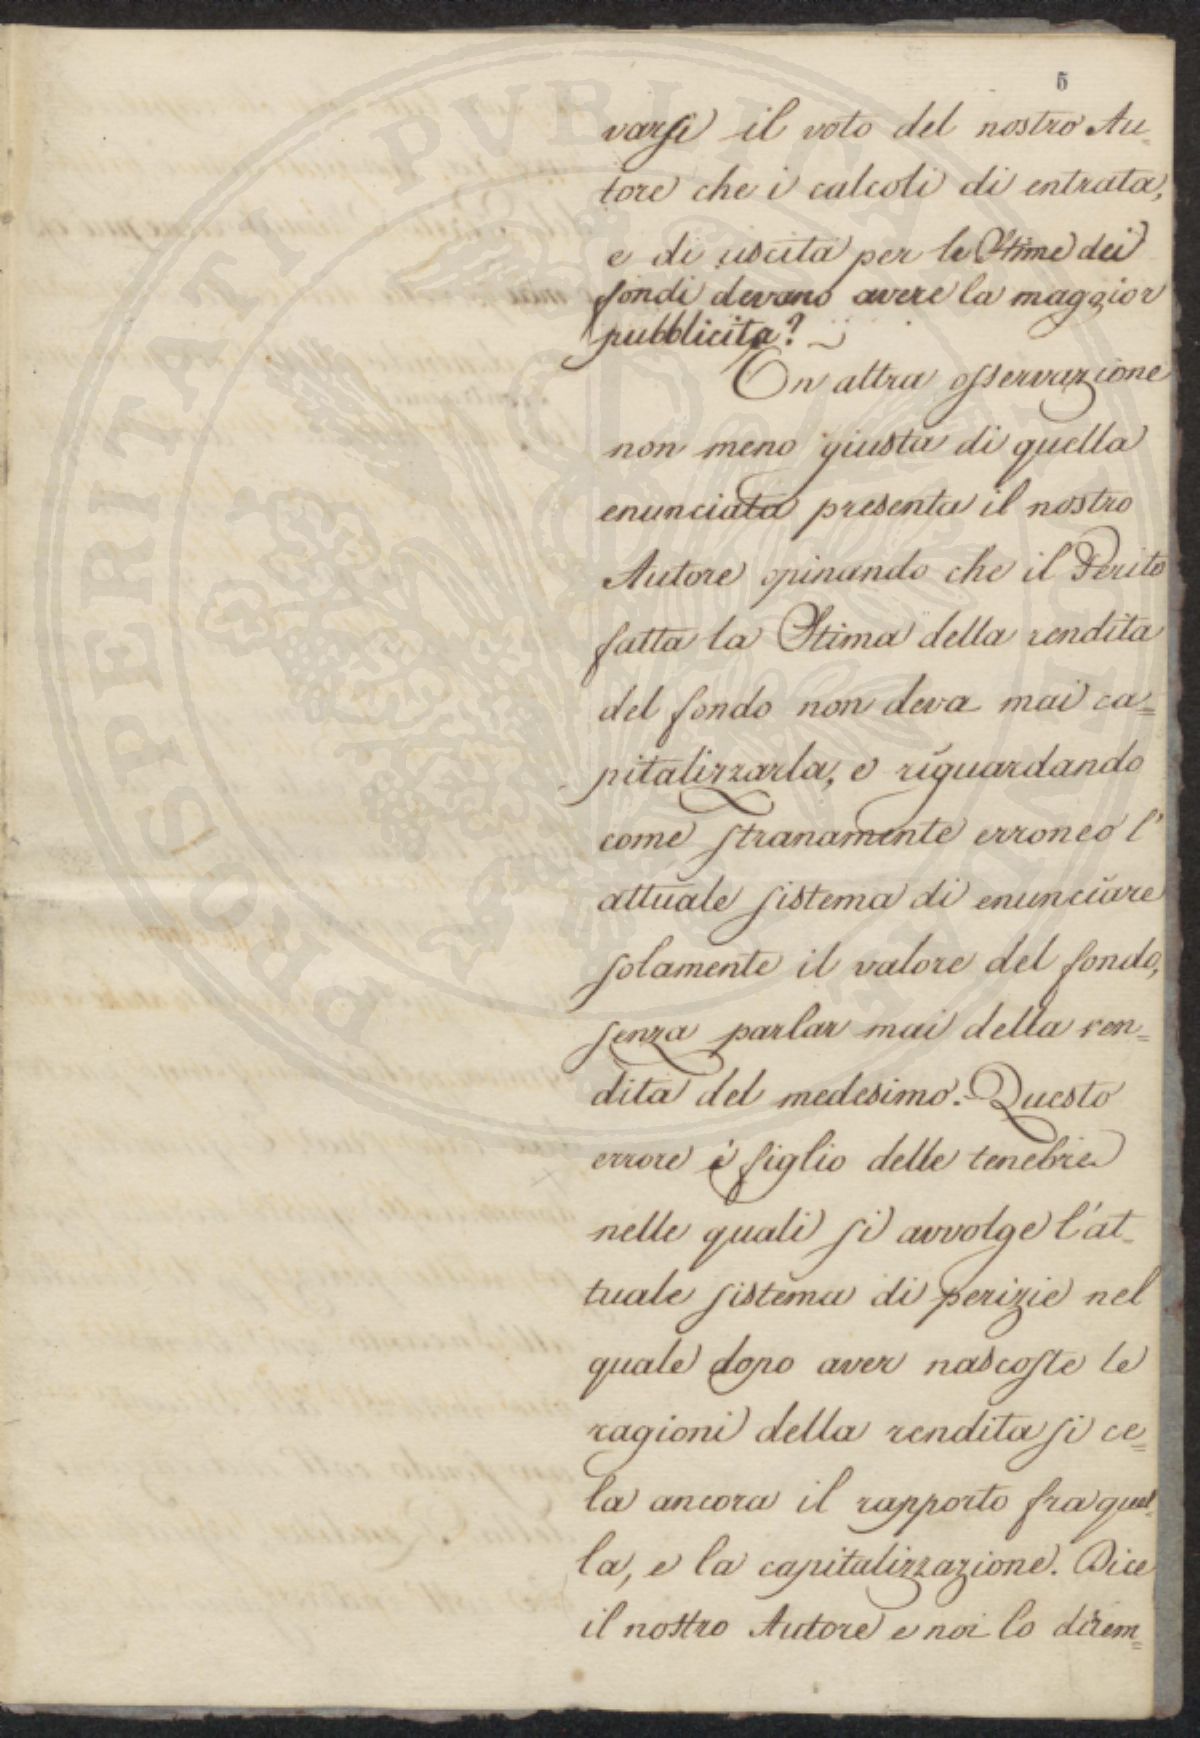 5
varsi il voto del nostro Au-
tore che i calcoli di entrata,
e di uscita per le Stime dei
fondi devano avere la maggior
pubblicita?
Un altra osservazione
non meno giusta di quella
enunciata presenta il nostro
Autore opinando che il Perito
fatta la Stima della rendita
del fondo non deva mai ca=
pitalizzarla, e riguardando
come stranamente erroneo l'
attuale sistema di enunciare
solamente il valore del fondo,
senza parlar mai della ren=
dita del medesimo. Questo
errore è figlio delle tenebre
nelle quali si avvolge l'at-
tuale sistema di perizie nel
quale dopo aver nascoste le
ragioni della rendita si ce-
la ancora il rapporto fra quel-
la, e la capitalizzazione. Dice
il nostro Autore e noi lo direm=
PROSPERITATI PUBLICAE